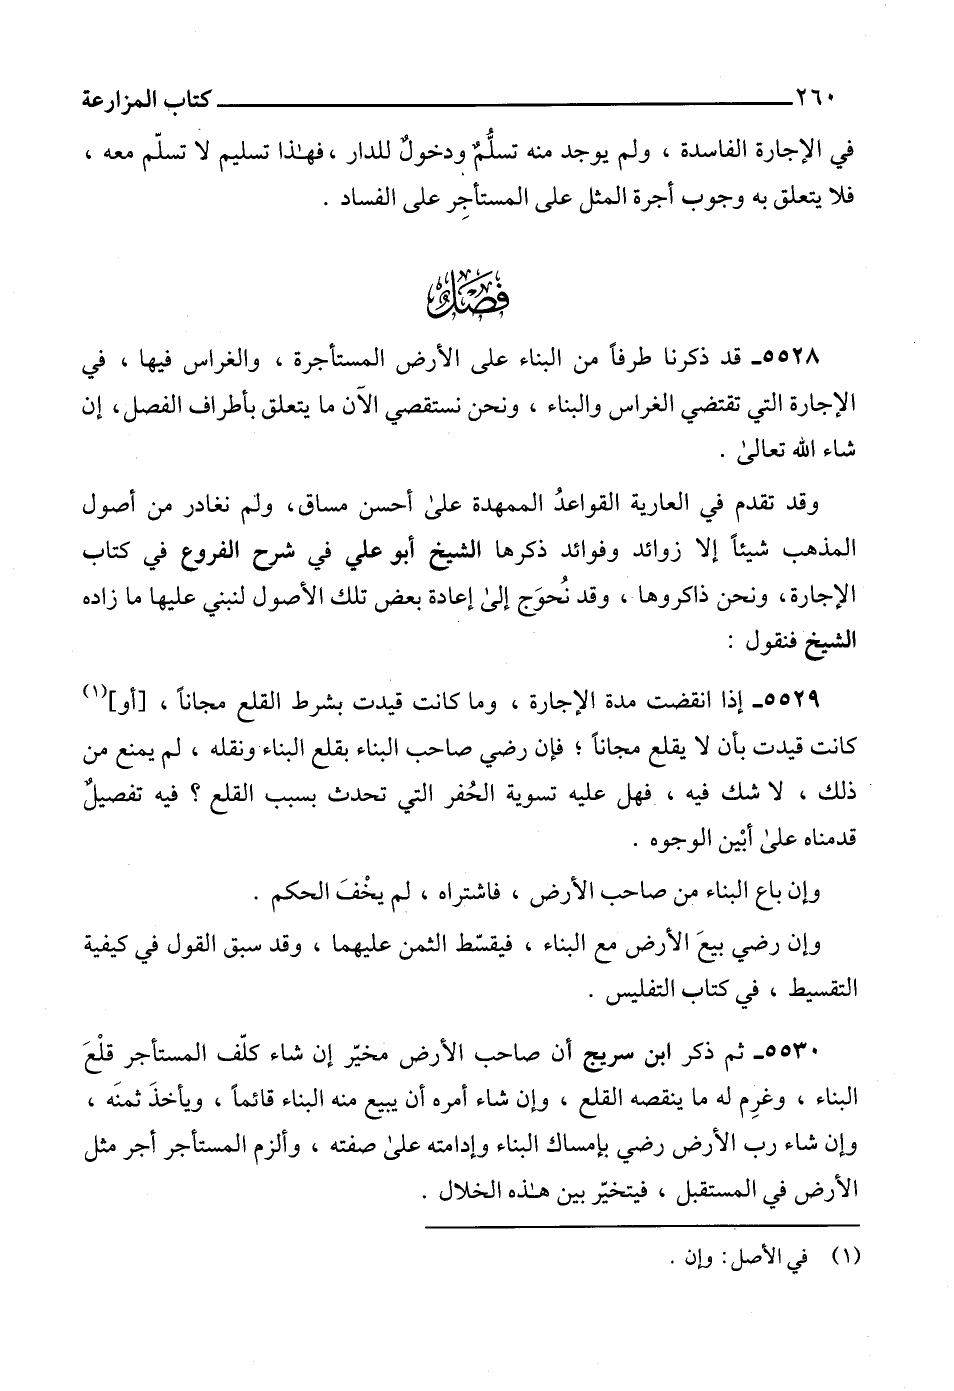 ٢٦٠ ــــــــــ كتاب المزارعة
في الإجارة الفاسدة ، ولم يوجد منه تسلُّمٌ ودخولٌ للدار ، فهٰذا تسليم لا تسلّم معه ،
فلا يتعلق به وجوب أجرة المثل على المستأجِر على الفساد .
فصل
٥٥٢٨ـ قد ذكرنا طرفاً من البناء على الأرض المستأجرة ، والغراس فيها ، في
الإجارة التي تقتضي الغراس والبناء ، ونحن نستقصي الآن ما يتعلق بأطراف الفصل، إن
شاء الله تعالىٰ .
وقد تقدم في العارية القواعدُ الممهدة علىٰ أحسن مساق، ولم نغادر من أصول
المذهب شيئاً إلا زوائد وفوائد ذكرها الشيخ أبو علي في شرح الفروع في كتاب
الإجارة، ونحن ذاكروها ، وقد نُحوَج إلىٰ إعادة بعض تلك الأصول لنبني عليها ما زاده
الشيخ فنقول :
٥٥٢٩ـ إذا انقضت مدة الإجارة ، وما كانت قيدت بشرط القلع مجاناً ، [أو](١)
كانت قيدت بأن لا يقلع مجاناً ؛ فإن رضي صاحب البناء بقلع البناء ونقله ، لم يمنع من
ذلك ، لا شك فيه ، فهل عليه تسوية الحُفر التي تحدث بسبب القلع ؟ فيه تفصيلٌ
قدمناه علىٰ أبْين الوجوه .
وإن باع البناء من صاحب الأرض ، فاشتراه ، لم يخْفَ الحكم .
وإن رضي بيعَ الأرض مع البناء ، فيقسّط الثمن عليهما ، وقد سبق القول في كيفية
التقسيط ، في كتاب التفليس .
٥٥٣٠ـ ثم ذكر ابن سريج أن صاحب الأرض مخيّر إن شاء كلّف المستأجر قلْعَ
البناء ، وغرِم له ما ينقصه القلع ، وإن شاء أمره أن يبيع منه البناء قائماً ، ويأخذَ ثمنَه ،
وإن شاء رب الأرض رضي بإمساك البناء وإدامته علىٰ صفته ، وألزم المستأجر أجر مثل
الأرض في المستقبل ، فيتخيّر بين هٰذه الخلال .
(١) في الأصل: وإن .